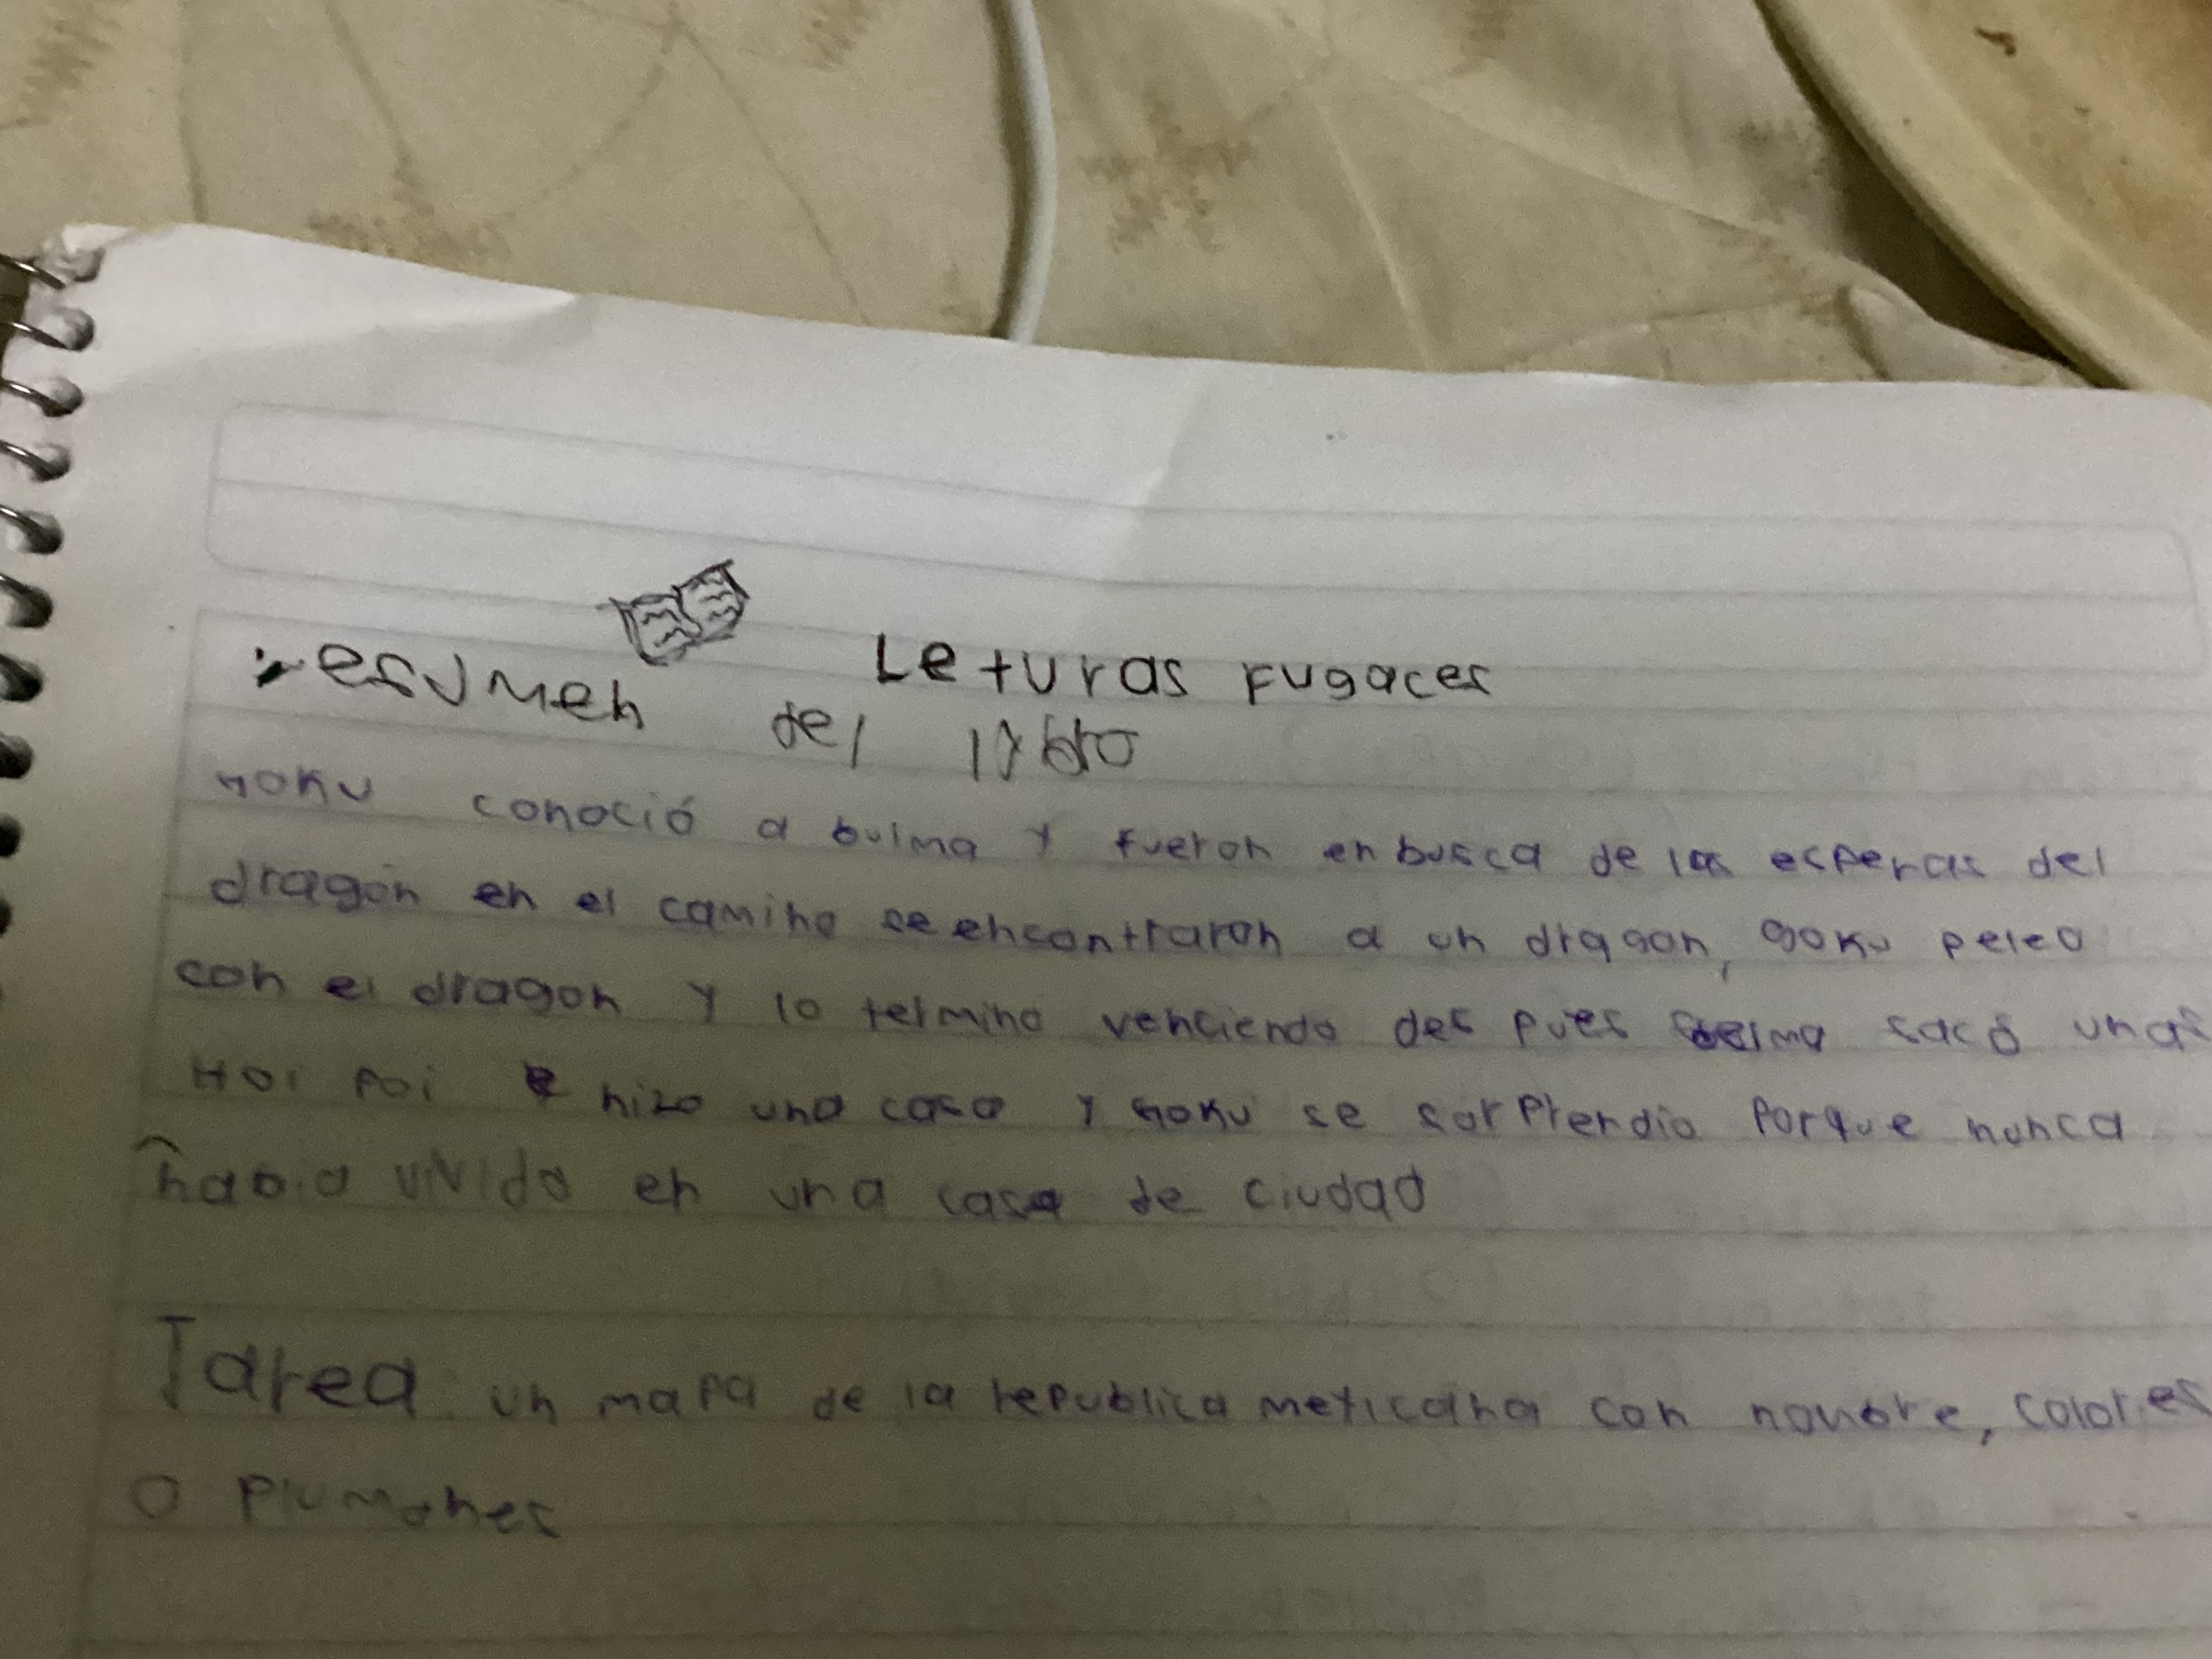 Leturas fugaces
resumen del libro
Goku conoció a bulma y fueron en busca de las esperas del
dragón en el camino se encontraron a un dragon, goku peleo
con el dragon y lo termino venciendo des pues sacó unas
Hoi Poi hizo una casa y Goku se sorprendio porque nunca
habia vivido en una casa de ciudad
Tarea: un mapa de la republica meticana con nonbre, colores
o plumones